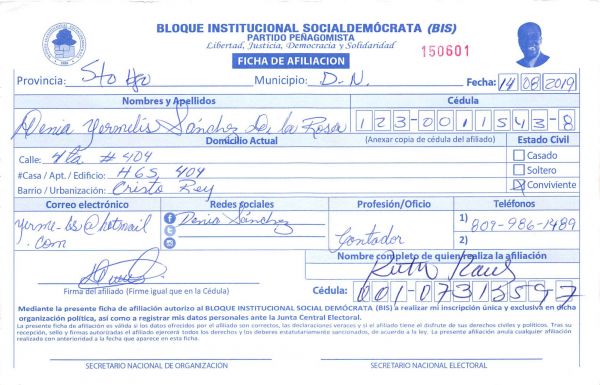 BLOQUE INSTITUCIONAL SOCIALDEMÓCRATA (BIS)
PARTIDO PEÑAGOMISTA
Libertad, Justicia, Democracia y Solidaridad
150601
FICHA DE AFILIACION
Provincia: Sto Dgo Municipio: D-N. Fecha: 14 08 2019
Nombres y Apellidos Cédula
Denia Yermilis Sánchez De la Rosa 123-0011543-8
Domicilio Actual (Anexar copia de cédula del afiliado) Estado Civil
Calle: 4ta # 404 Casado
#Casa / Apt. / Edificio: H65, 404 Soltero
Barrio / Urbanización: Cristo Rey Conviviente
Correo electrónico Redes sociales Profesión/Oficio Teléfonos
yerme-bs@hotmail Denia Sánchez 1) 809-986-1489
.com Contador 2)
Nombre completo de quien realiza la afiliación
Ruth
Firma del afiliado (Firme igual que en la Cédula) Cédula: 001-0731559-7
Mediante la presente ficha de afiliación autorizo al BLOQUE INSTITUCIONAL SOCIAL DEMÓCRATA (BIS) a realizar mi inscripción única y exclusiva en dicha
organización política, así como a registrar mis datos personales ante la Junta Central Electoral.
La presente ficha de afiliación es válida si los datos ofrecidos por el afiliado son correctos, las declaraciones veraces y si el afiliado tiene el disfrute de sus derechos civiles y políticos. Tras su
recepción, sello y firmas autorizadas el afiliado ejercerá todos los derechos y los deberes estatutariamente sancionados, de acuerdo a la ley. La presente afiliación anula cualquier afiliación
realizada con anterioridad a la fecha que aparece en esta ficha.
SECRETARIO NACIONAL DE ORGANIZACIÓN SECRETARIO NACIONAL ELECTORAL